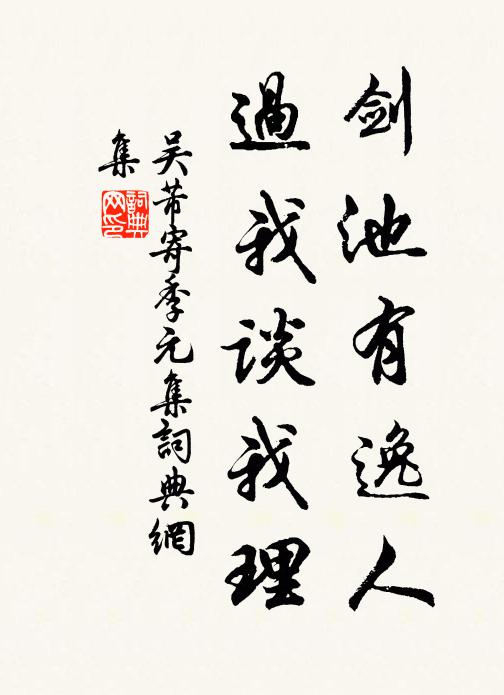 剑池有逸人
過我谈我理
吴芾寄季元集詞典網
集
詞典
网印